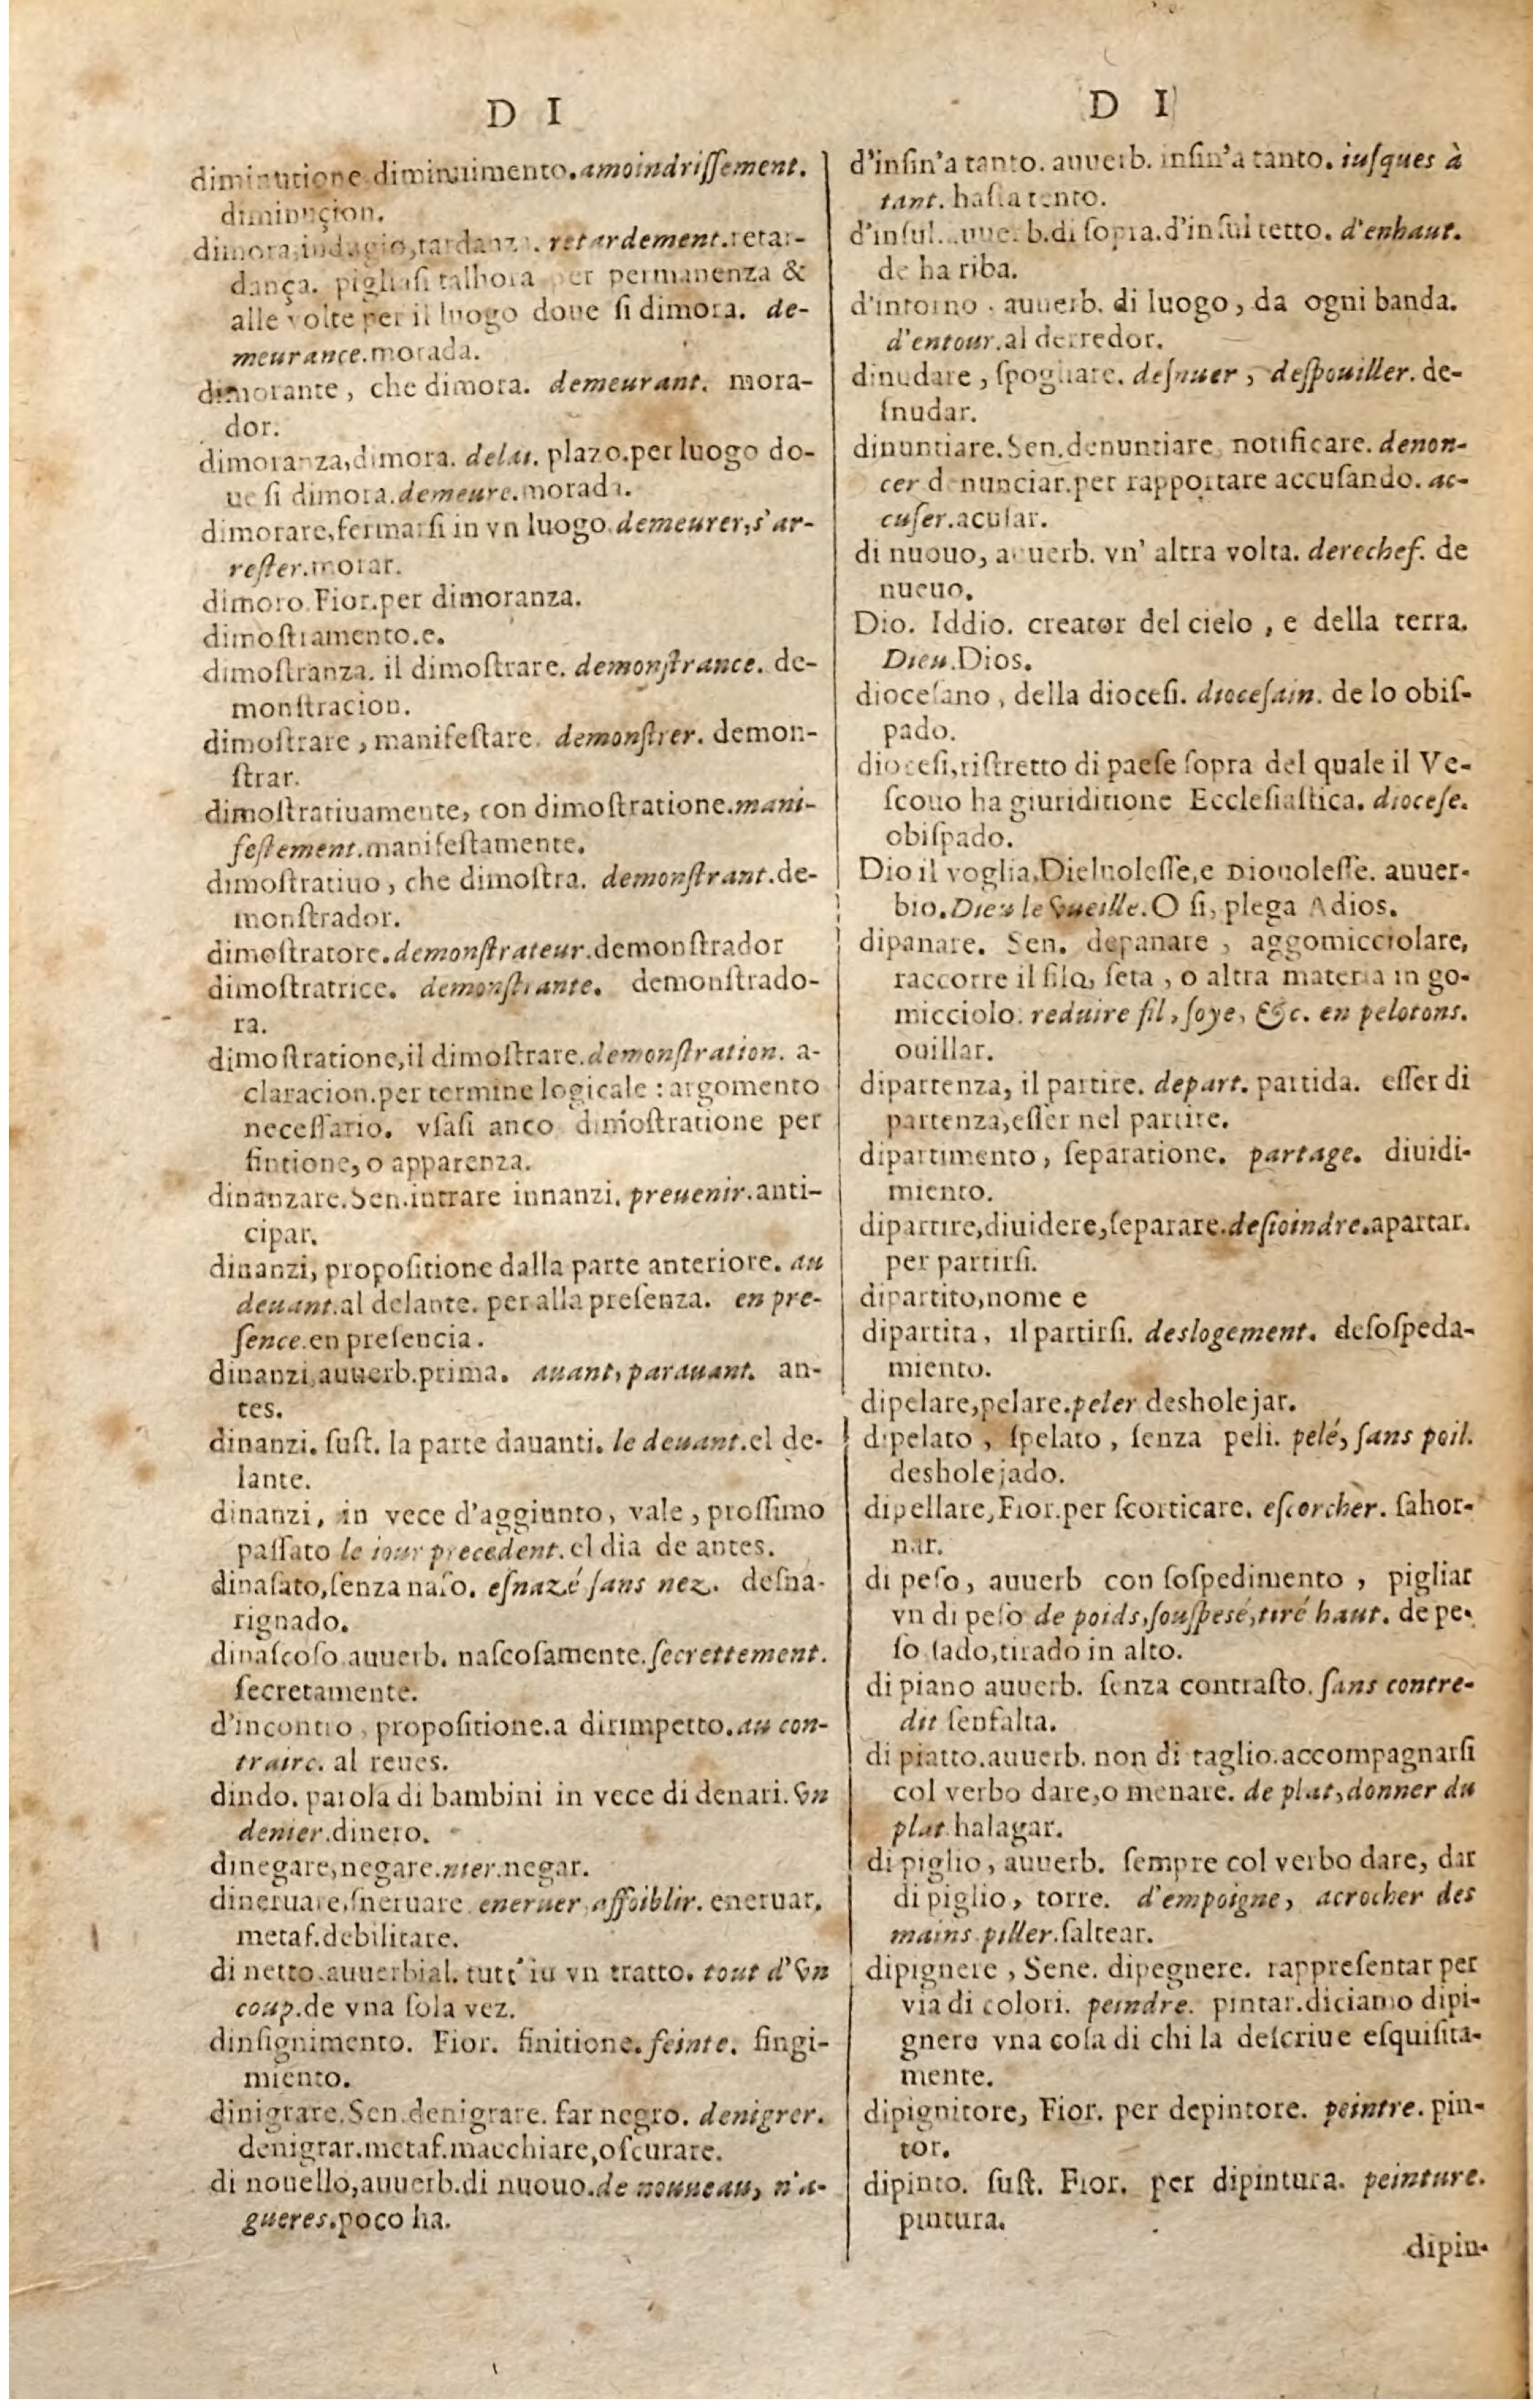 D I
diminutione diminuimento.amoindriſſement.
diminuçion.
dimora,indugio,tardanza. retardement.retar-
dança. pigliaſi talhora per permanenza &
alle volte per il luogo doue ſi dimora. de-
meurance.morada.
dimorante, che dimora. demeurant. mora-
dor.
dimoranza,dimora. delai. plazo.per luogo do-
ue ſi dimora.demeure.morada.
dimorare,fermarſi in vn luogo.demeurer,s'ar-
reſter.morar.
dimoro.Fior.per dimoranza.
dimoſtramento.e.
dimoſtranza. il dimoſtrare. demonſtrance. de-
monſtracion.
dimoſtrare, manifeſtare. demonſtrer. demon-
ſtrar.
dimoſtratiuamente, con dimoſtratione.mani-
feſtement.manifeſtamente.
dimoſtratiuo, che dimoſtra. demonſtrant.de-
monſtrador.
dimoſtratore.demonſtrateur.demonſtrador
dimoſtratrice. demonſtrante. demonſtrado-
ra.
dimoſtratione,il dimoſtrare.demonſtration. a-
claracion.per termine logicale : argomento
neceſſario. vſaſi anco dimoſtratione per
fintione, o apparenza.
dinanzare.Sen.intrare innanzi. preuenir.anti-
cipar.
dinanzi, propoſitione dalla parte anteriore. au
deuant.al delante. per alla preſenza. en pre-
ſence.en preſencia.
dinanzi,auuerb.prima. auant, parauant. an-
tes.
dinanzi. ſuſt. la parte dauanti. le deuant.el de-
lante.
dinanzi, in vece d'aggiunto, vale, proſſimo
paſſato le iour precedent.el dia de antes.
dinaſato,ſenza naſo. eſnazé ſans nez. deſna-
rignado.
dinaſcoſo.auuerb. naſcoſamente.ſecrettement.
ſecretamente.
d'incontro, propoſitione.a dirimpetto.au con-
traire. al reues.
dindo. parola di bambini in vece di denari. vn
denier.dinero.
dinegare,negare.nier.negar.
dineruare,ſneruare eneruer affoiblir. eneruar.
metaf.debilitare.
di netto.auuerbial. tutt'in vn tratto. tout d'vn
coup.de vna ſola vez.
dinſignimento. Fior. finitione. feinte. fingi-
miento.
dinigrare.Sen.denigrare. far negro. denigrer.
denigrar.metaf.macchiare,oſcurare.
di nouello,auuerb.di nuouo.de nouueau, n'a-
gueres.poco ha.
D I
d'inſin'a tanto. auuerb. inſin'a tanto. iuſques à
tant. haſta tento.
d'inſul. auuerb.di ſopra.d'inſul tetto. d'enhaut.
de ha riba.
d'intorno. auuerb. di luogo, da ogni banda.
d'entour.al derredor.
dinudare, ſpogliare. deſnuer, deſpouiller. de-
ſnudar.
dinuntiare.Sen.denuntiare, notificare. denon-
cer denunciar.per rapportare accuſando. ac-
cuſer.acuſar.
di nuouo, auuerb. vn' altra volta. derechef. de
nueuo.
Dio. Iddio. creator del cielo, e della terra.
Dieu.Dios.
dioceſano, della dioceſi. dioceſain. de lo obiſ-
pado.
dioceſi,riſtretto di paeſe ſopra del quale il Ve-
ſcouo ha giuriditione Eccleſiaſtica. dioceſe.
obiſpado.
Dio il voglia,Dieluoleſſe,e Diouoleſſe. auuer-
bio.Dieu le vueille.O ſi, plega Adios.
dipanare. Sen. depanare, aggomicciolare,
raccorre il filo, ſeta, o altra materia in go-
micciolo. reduire fil, ſoye, &c. en pelotons.
ouillar.
dipartenza, il partire. depart. partida. eſſer di
partenza,eſſer nel partire.
dipartimento, ſeparatione. partage. diuidi-
miento.
dipartire,diuidere,ſeparare.deſioindre.apartar.
per partirſi.
dipartito,nome e
dipartita, il partirſi. deslogement. deſoſpeda-
miento.
dipelare,pelare.peler desholejar.
dipelato, ſpelato, ſenza peli. pelé, ſans poil.
desholejado.
dipellare,Fior.per ſcorticare. eſcorcher. ſahor-
nar.
di peſo, auuerb con ſoſpedimento, pigliar
vn di peſo de poids,ſouſpesé,tiré haut. de pe-
ſo ſado,tirado in alto.
di piano auuerb. ſenza contraſto. ſans contre-
dit ſenfalta.
di piatto.auuerb. non di taglio.accompagnarſi
col verbo dare,o menare. de plat,donner du
plat halagar.
di piglio, auuerb. ſempre col verbo dare, dar
di piglio, torre. d'empoigne, acrocher des
mains piller.ſaltear.
dipignere, Sene. dipegnere. rappreſentar per
via di colori. peindre. pintar.diciamo dipi-
gnere vna coſa di chi la deſcriue eſquiſita-
mente.
dipignitore, Fior. per depintore. peintre. pin-
tor.
dipinto. ſuſt. Fior. per dipintura. peinture.
pintura.
dipin-